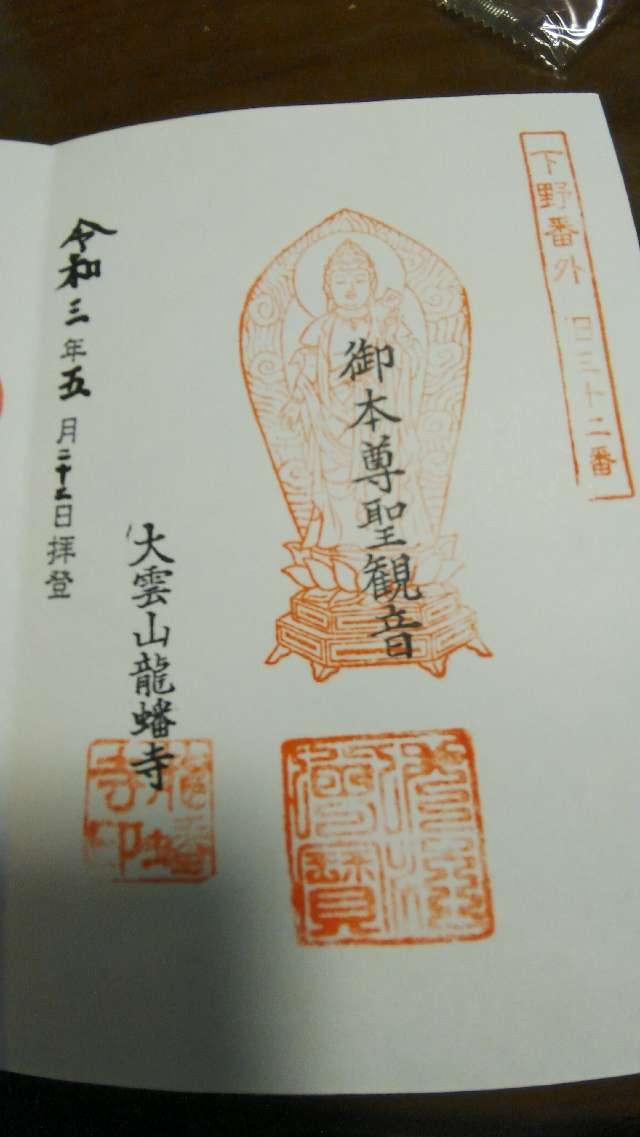 下野番外 日三十二番
御本尊聖観音
佛法僧寶
大雲山龍蟠寺
龍蟠寺印
令和三年五月二十二日拝登